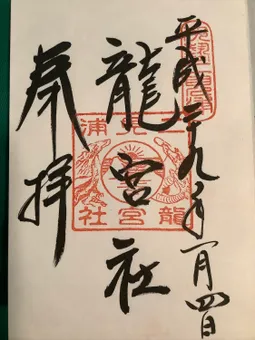 平成二九年一月四日
龍宮社
奉拝
二見浦
龍宮社